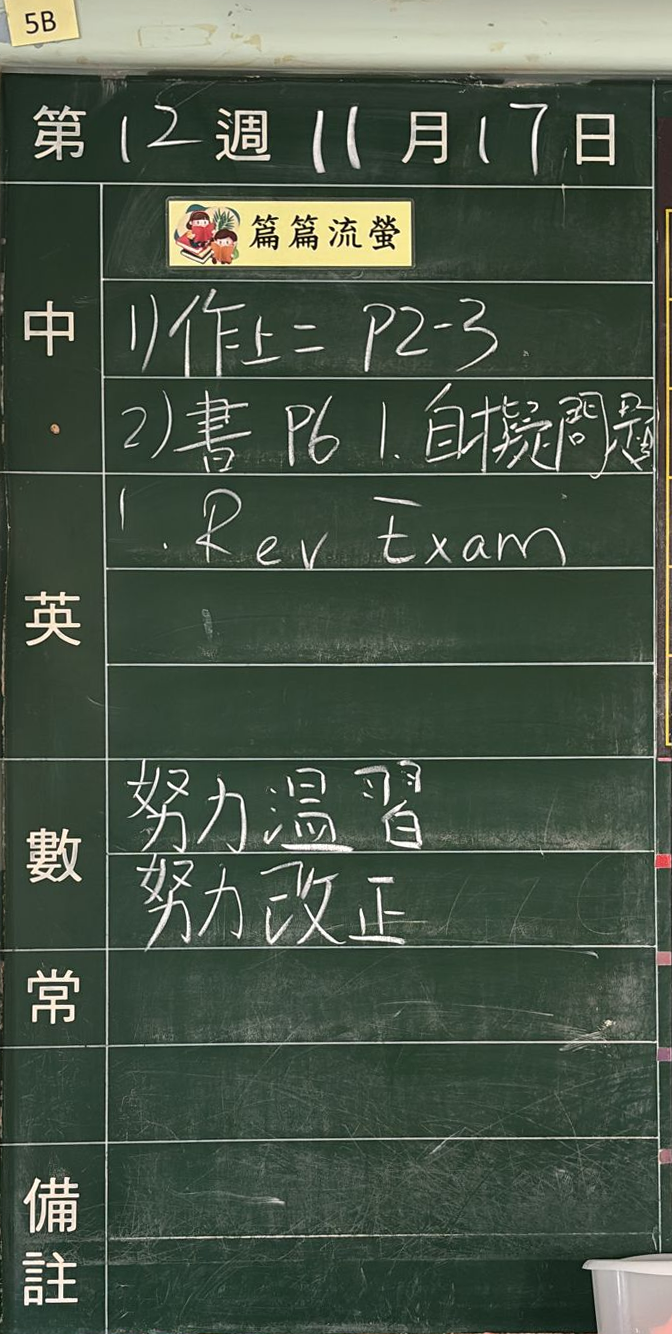 5B
第12週11月17日
中
篇篇流螢
1)作上二 P2-3
2)書 P6 1.自擬問題
英
1. Rev Exam
數
努力温習
努力改正
常
備註